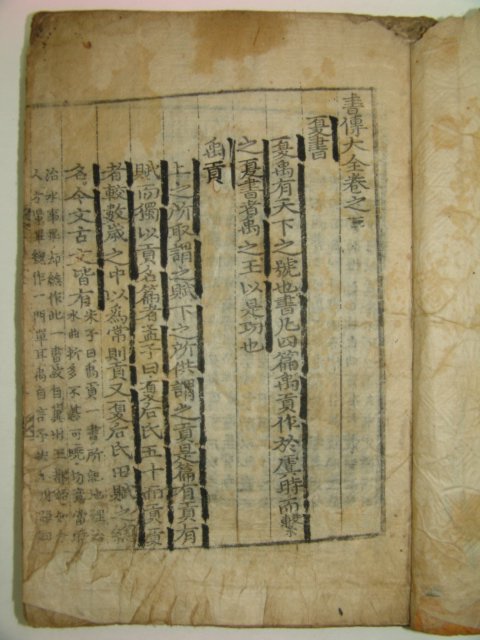 書傳大全卷之三
夏書
夏禹有天下之號也書凡四篇禹貢作於虞時而繫
之夏書者禹之王以是功也
禹貢
上之所取謂之賦下之所供謂之貢是篇有貢有
賦而獨以貢名篇者孟子曰夏后氏五十而貢貢
者較數歲之中以為常則貢又夏后氏田賦之總
名今文古文皆有朱子曰禹貢一書所記地理治
水曲折多不甚可曉切意當時
治水事畢却總作此一書